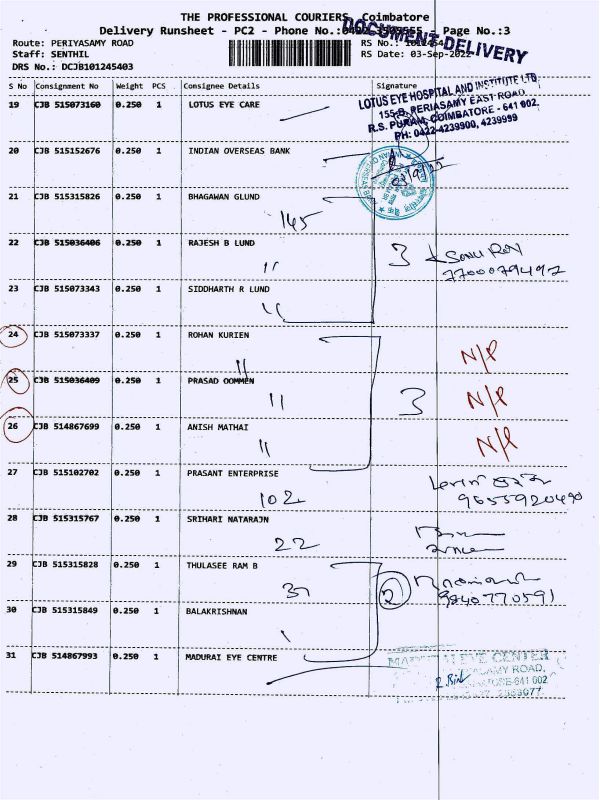 THE PROFESSIONAL COURIERS, Coimbatore
Delivery Runsheet - PC2 - Phone No.: Page No.:3
Route: PERIYASAMY ROAD
Staff: SENTHIL RS Date: 03-Sep-2022
DRS No.: DCJB101245403
DOCUMENT DELIVERY
S No Consignment No Weight PCS Consignee Details Signature
19 CJB 515073160 0.250 1 LOTUS EYE CARE
LOTUS EYE HOSPITAL AND INSTITUTE LTD
155-B, PERIASAMY EAST ROAD
R.S. PURAM, COIMBATORE - 641 002.
PH: 0422-4239900, 4239999
20 CJB 515152676 0.250 1 INDIAN OVERSEAS BANK
03/9/22
21 CJB 515315826 0.250 1 BHAGAWAN GLUND
145
22 CJB 515036406 0.250 1 RAJESH B LUND
11 3 Sonu Roy
7700079492
23 CJB 515073343 0.250 1 SIDDHARTH R LUND
11
24 CJB 515073337 0.250 1 ROHAN KURIEN
11 N/P
25 CJB 515036409 0.250 1 PRASAD OOMMEN
11 3 N/P
26 CJB 514867699 0.250 1 ANISH MATHAI
11 N/P
27 CJB 515102702 0.250 1 PRASANT ENTERPRISE
102 9655920490
28 CJB 515315767 0.250 1 SRIHARI NATARAJN
22
29 CJB 515315828 0.250 1 THULASEE RAM B
31 2 9840770591
30 CJB 515315849 0.250 1 BALAKRISHNAN
31 CJB 514867993 0.250 1 MADURAI EYE CENTRE
EYE CENTER
ROAD,
641 002